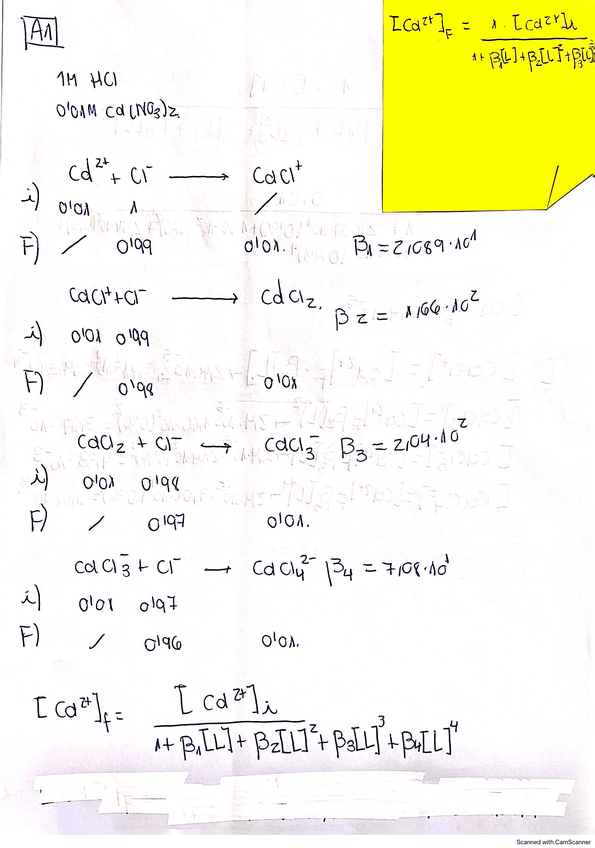 A1
[Cd²⁺]F = 1·[Cd²⁺]i
1+β₁[L]+β₂[L]²+β₃[L]³
1M HCl
0'01M Cd(NO₃)₂
Cd²⁺ + Cl⁻ → CdCl⁺
i) 0'01 1 /
F) / 0'99 0'01. β₁ = 2,089·10¹
CdCl⁺+Cl⁻ → CdCl₂. β₂ = 1,66·10²
i) 0'01 0'99
F) / 0'98 0'01
CdCl₂ + Cl⁻ → CdCl₃⁻ β₃ = 2,04·10²
i) 0'01 0'98
F) / 0'97 0'01.
CdCl₃⁻ + Cl⁻ → CdCl₄²⁻ β₄ = 7,08·10¹
i) 0'01 0'97
F) / 0'96 0'01.
[Cd²⁺]f = [Cd²⁺]i
1+β₁[L]+β₂[L]²+β₃[L]³+β₄[L]⁴
Scanned with CamScanner